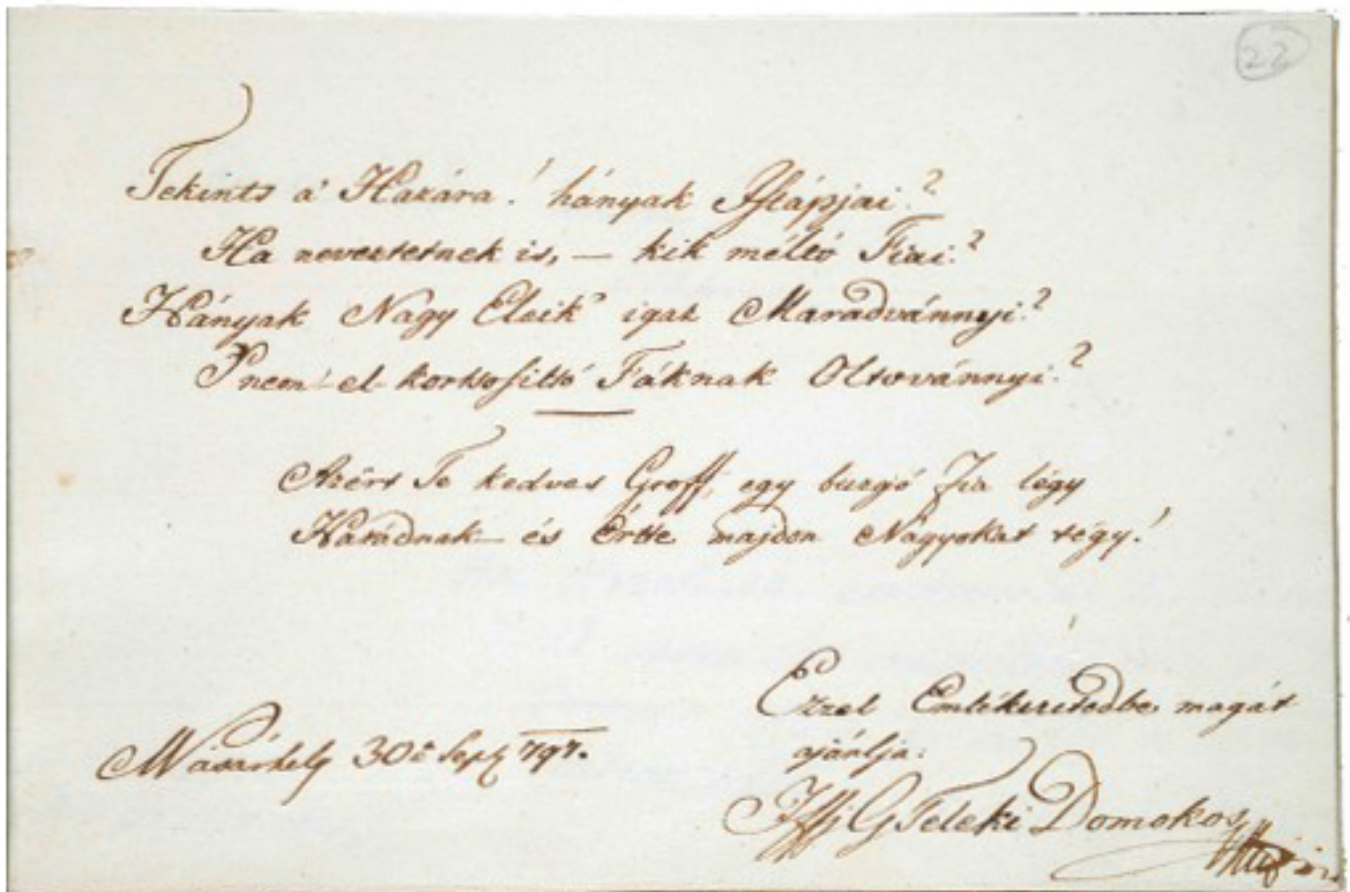 22
Tekints a' Hazára! hányak Istápjai?
Ha neveztetnek is, — kik méltó Fiai?
Hányak Nagy Eleik' igaz Maradvánnyi?
S nem el-kortsosittó Fáknak Oltoványnyi?
Azért Te kedves Groff, egy buzgó Fia légy
Hazádnak — és Értte majdon Nagyokat tégy!
Ezzel Emlékezetedbe magát
ajánlja:
MVásárhely 30ª Sept 797.
Iffj G Teleki Domokos